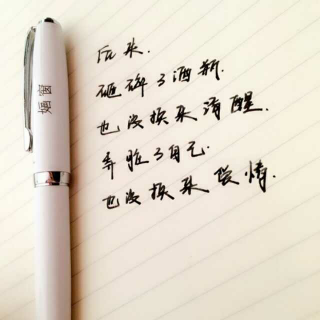 后来.
砸碎了酒瓶.
也没换来清醒.
弄脏了自己.
也没换来爱情.